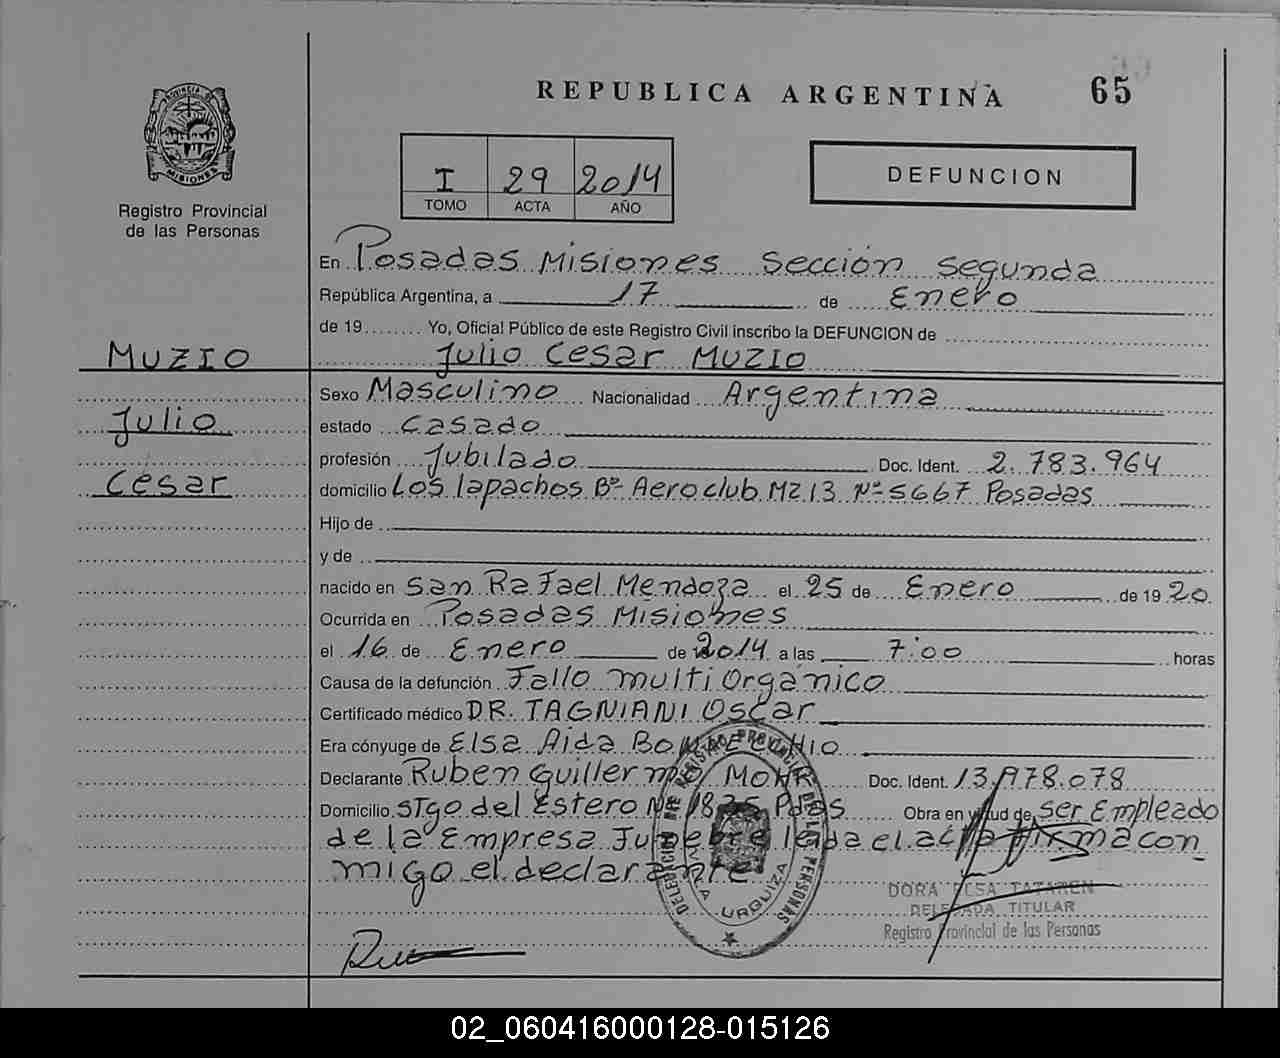 REPUBLICA ARGENTINA 65
PROVINCIA DE
MISIONES
Registro Provincial
de las Personas
I 29 2014
TOMO ACTA AÑO
DEFUNCION
En Posadas Misiones Sección Segunda
República Argentina, a 17 de Enero
de 19........ Yo, Oficial Público de este Registro Civil inscribo la DEFUNCION de
MUZIO
Julio Cesar MUZIO
Julio
Cesar
Sexo Masculino Nacionalidad Argentina
estado Casado
profesión Jubilado Doc. Ident. 2.783.964
domicilio Los lapachos Bº Aeroclub Mz 13 Nº 5667 Posadas
Hijo de
y de
nacido en San Rafael Mendoza el 25 de Enero de 1920
Ocurrida en Posadas Misiones
el 16 de Enero de 2014 a las 7:00 horas
Causa de la defunción Fallo multiorgánico
Certificado médico DR. TAGNIANI Oscar
Era cónyuge de Elsa Aida
Declarante Ruben Guillermo MOHR Doc. Ident. 13.978.078
Domicilio STgo del Estero Nº 1835 Pdas Obra en virtud de ser Empleado
de la Empresa Funebre leida el acta firma con
migo el declarante
DELEGACION DEL REGISTRO PROVINCIAL DE LAS PERSONAS
VILLA URQUIZA
DORA ELSA
DELEGADA TITULAR
Registro Provincial de las Personas
02_060416000128-015126